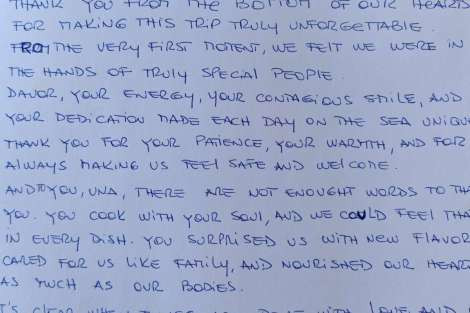 THANK YOU FROM THE BOTTOM OF OUR HEARTS
FOR MAKING THIS TRIP TRULY UNFORGETTABLE.
FROM THE VERY FIRST MOMENT, WE FELT WE WERE IN
THE HANDS OF TRULY SPECIAL PEOPLE.
DAVOR, YOUR ENERGY, YOUR CONTAGIOUS SMILE, AND
YOUR DEDICATION MADE EACH DAY ON THE SEA UNIQU
THANK YOU FOR YOUR PATIENCE, YOUR WARMTH, AND FOR
ALWAYS MAKING US FEEL SAFE AND WELCOME.
AND YOU, UNA, THERE ARE NOT ENOUGHT WORDS TO TH
YOU. YOU COOK WITH YOUR SOUL, AND WE COULD FEEL THA
IN EVERY DISH. YOU SURPRISED US WITH NEW FLAVOR
CARED FOR US LIKE FAMILY, AND NOURISHED OUR HEAR
AS MUCH AS OUR BODIES.
IT'S CLEAR WITH LOVE AND